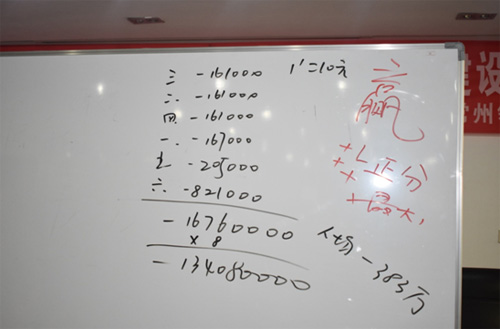 三 -161000 1'=10元
二. -161000
四 -161000
一. -167000
-205000
六. -821000
-16760000
×8
-134080000
赢
正分
最大
-383万
建设
常州